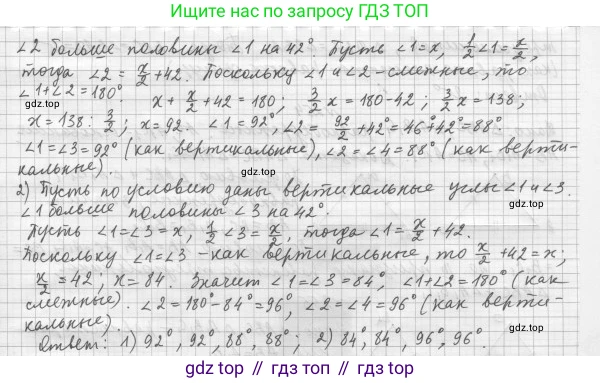 Ищите нас по запросу ГДЗ ТОП
∠2 больше половины ∠1 на 42°. Пусть ∠1=x, 1/2∠1=x/2,
тогда ∠2=x/2+42. Поскольку ∠1 и ∠2-смежные, то
∠1+∠2=180°. x+x/2+42=180; 3/2x=180-42; 3/2x=138;
gdz.top
gdz.top
x=138:3/2; x=92. ∠1=92°, ∠2=92/2+42°=46°+42°=88°.
∠1=∠3=92° (как вертикальные), ∠2=∠4=88° (как верти-
кальные).
gdz.top
2) Пусть по условию даны вертикальные углы ∠1 и ∠3.
∠1 больше половины ∠3 на 42°.
Пусть ∠1=∠3=x, 1/2∠3=x/2, тогда ∠1=x/2+42.
gdz.top
gdz.top
Поскольку ∠1=∠3 -как вертикальные, то x/2+42=x;
x/2=42, x=84. Значит ∠1=∠3=84°, ∠1+∠2=180° (как
смежные). ∠2=180°-84°=96°, ∠2=∠4=96° (как верти-
кальные).
gdz.top
gdz.top
Ответ: 1) 92°, 92°, 88°, 88°; 2) 84°, 84°, 96°, 96°.
gdz top // гдз топ // gdz top // гдз топ